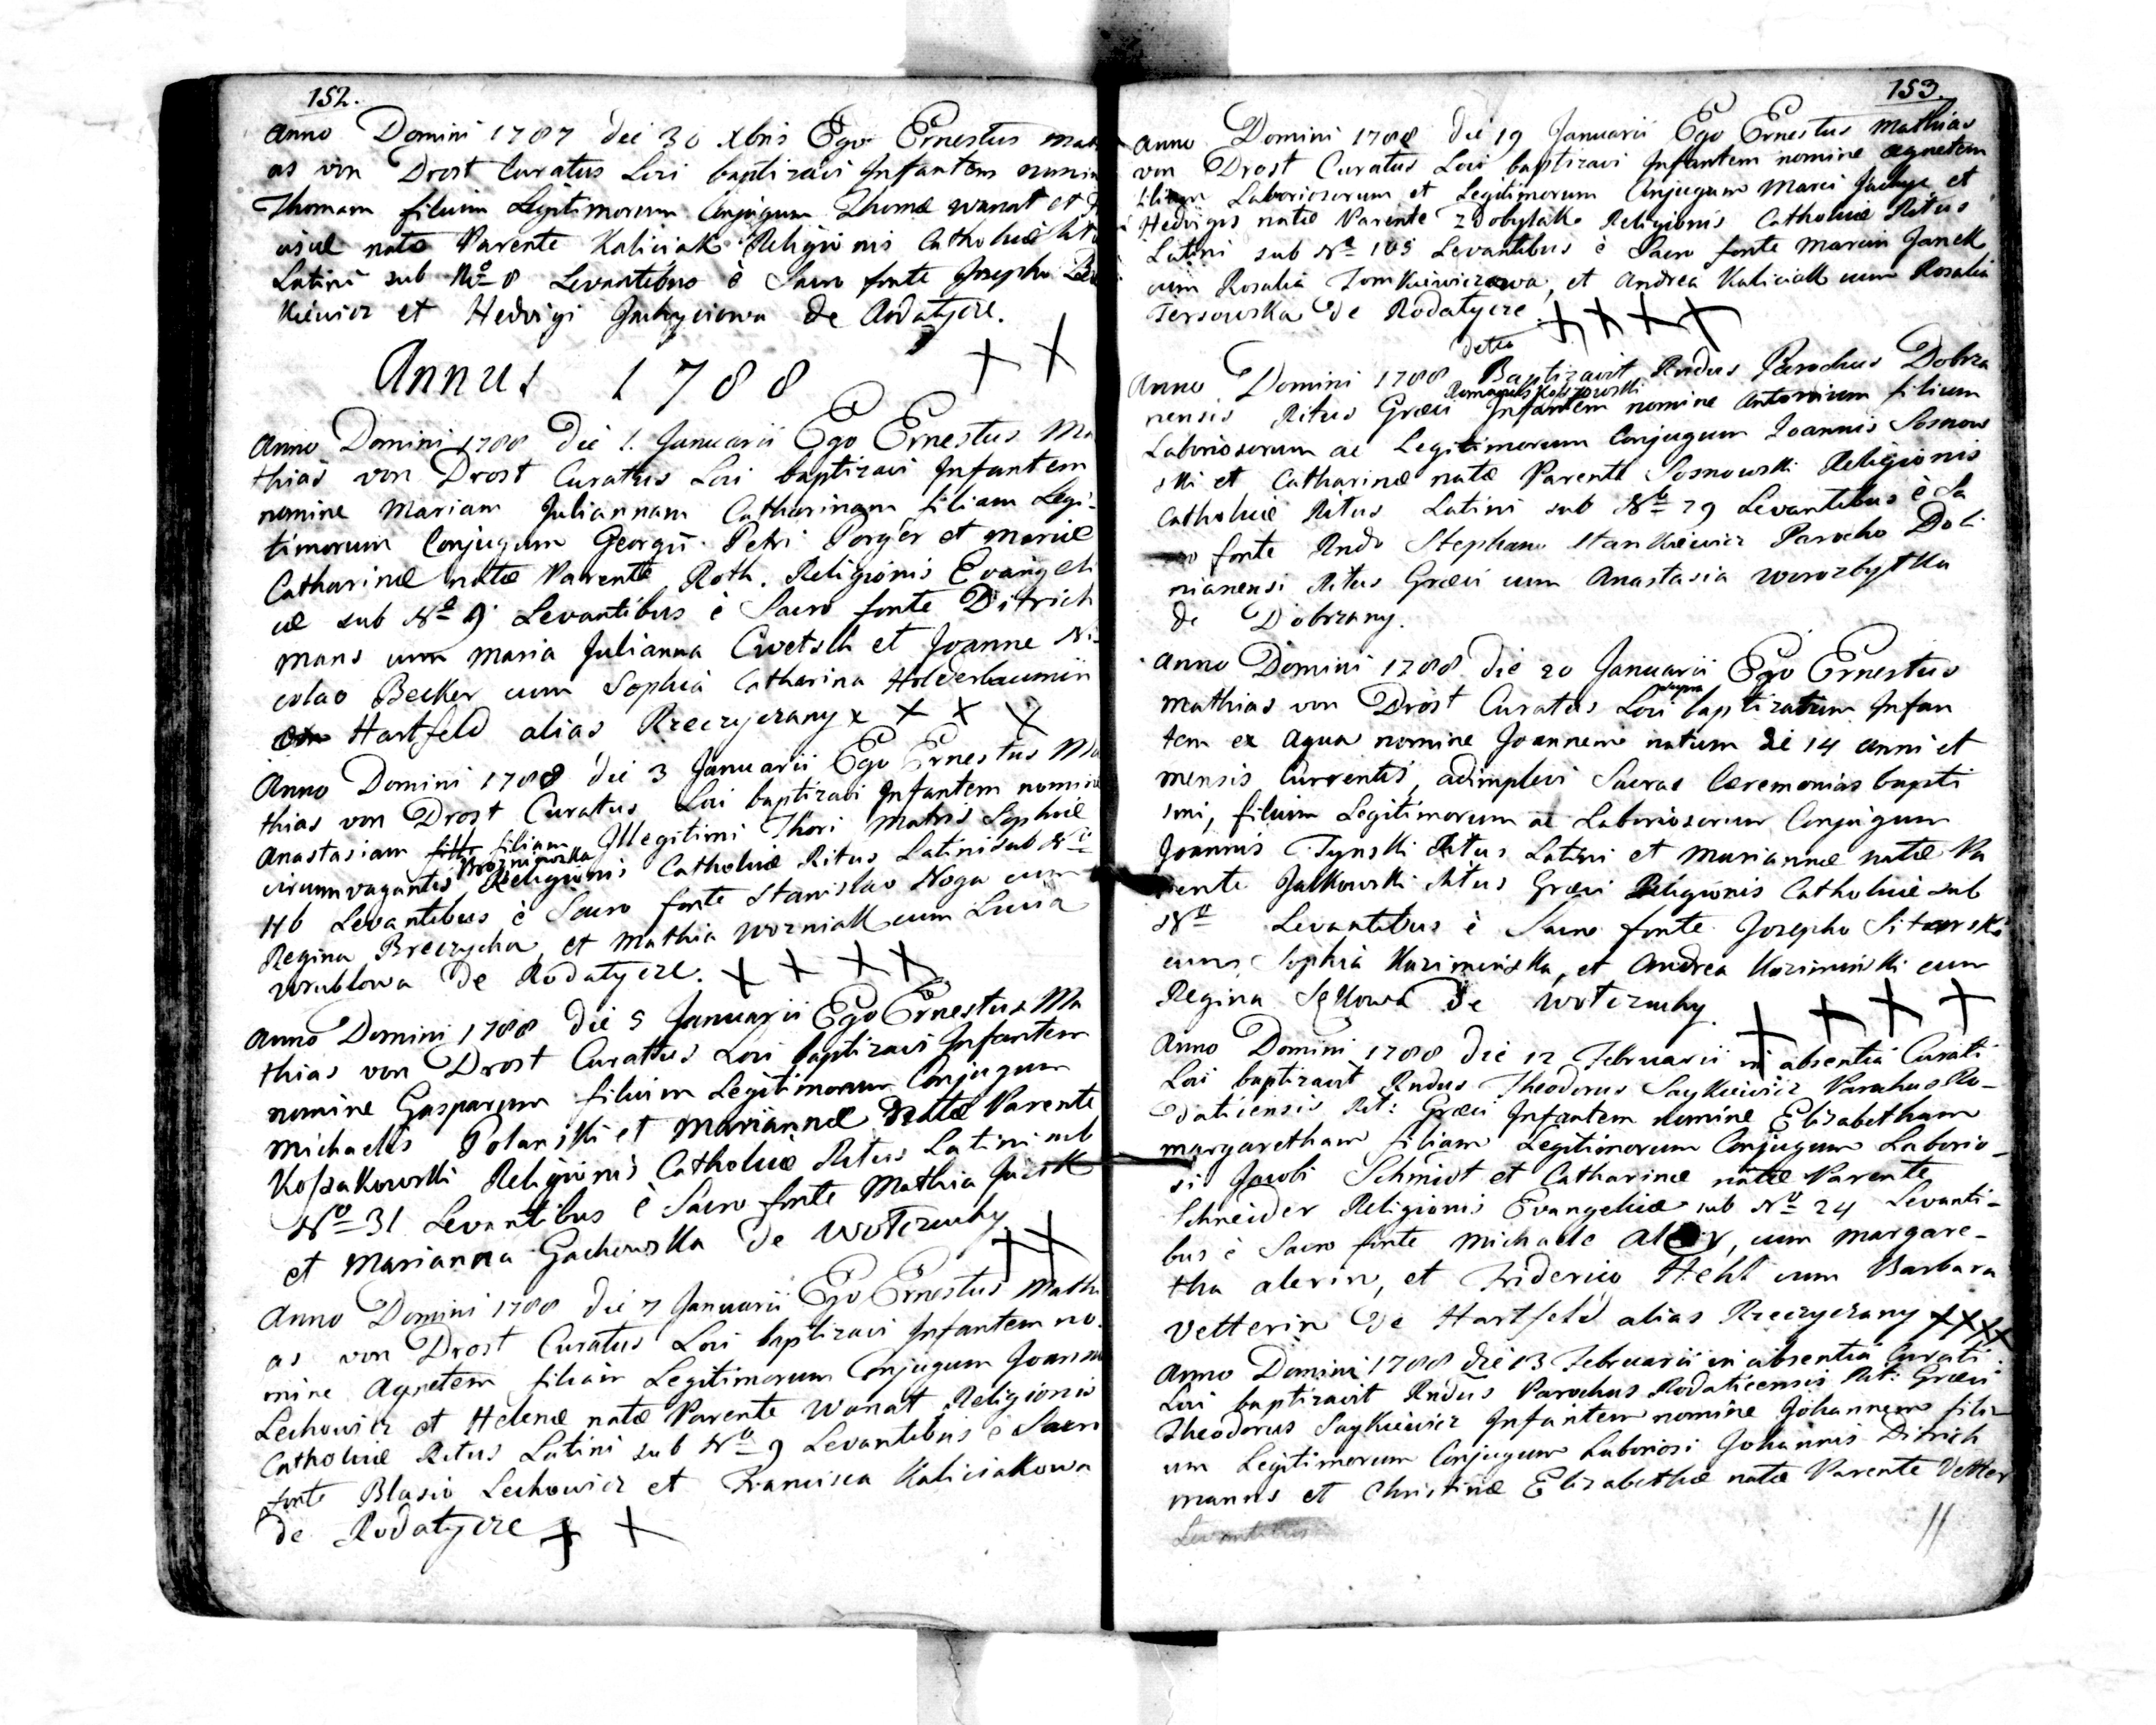 152.
Anno Domini 1787 die 30 Xbris Ego Ernestus Mathi
as von Drost Curatus Loci baptizavi Infantem nomin
Thomam filium Legitimorum Conjugum Thomæ Wanat et
natæ Parente Kaliciak Religionis Catholicæ Ritus
Latini sub Nro 8 Levantibus è Sacro fonte Josepho
kiewicz et Hedvigi Jachyciowa de Rodatycze.
Annus 1788
Anno Domini 1788 die 1. Januarii Ego Ernestus Ma
thias von Drost Curatus Loci baptizavi Infantem
nomine Mariam Juliannam Catharinam filiam Legi-
timorum Conjugum Georgii Petri Porger et Mariæ
Catharinæ natæ Parente Roth. Religionis Evangeli
cæ sub No 9 Levantibus è Sacro fonte Ditrich
mans cum Maria Julianna Cwetsch et Joanne Ni
colao Becker cum Sophia Catharina Holderbaumin
Hartfeld alias Rzeczyczany x x x x
Anno Domini 1788 die 3 Januarii Ego Ernestus Ma
thias von Drost Curatus Loci baptizavi Infantem nomine
Anastasiam filiam Illegitimi Thori Matris Sophiæ
circumvagantis Religionis Catholicæ Ritus Latini sub No
46 Levantibus è Sacro fonte Stanislao Noga cum
Regina Breczycha, et Mathia Wozniak cum Lucia
Wrublowa de Rodatycze. x x x x
Anno Domini 1788 die 5 Januarii Ego Ernestus Ma
thias von Drost Curatus Loci baptizavi Infantem
nomine Gasparum filium Legitimorum Conjugum
Michaelis Polanski et Mariannæ natæ Parente
Kossakowski Religionis Catholicæ Ritus Latini sub
No 31 Levantibus è Sacro fonte Mathia
et Marianna Gachowska de Wotczuchy
x x
Anno Domini 1788 die 7 Januarii Ego Ernestus Mathi
as von Drost Curatus Loci baptizavi Infantem no-
mine Agnetem filiam Legitimorum Conjugum Joannis
Lechowicz et Helenæ natæ Parente Wanat Religionis
Catholicæ Ritus Latini sub No 9 Levantibus è Sacro
fonte Blasio Lechowicz et Francisca Kaliciakowa
de Rodatycze x x
153.
Anno Domini 1788 die 19 Januarii Ego Ernestus Mathias
von Drost Curatus Loci baptizavi Infantem nomine Agnetem
filiam Laboriosorum et Legitimorum Conjugum Marci Jachyc et
Hedvigis natæ Parente Zdobylak Religionis Catholicæ Ritus
Latini sub No 105 Levantibus è Sacro fonte Marcin Janek
cum Rosalia Tomkiewiczowa, et Andrea Kaliciak cum Rosalia
Tersowska de Rodatycze. x x x x
detto
Anno Domini 1788 Baptizavit Rndus Parochus Dobrza
nensis Ritus Græci Infantem nomine Antonium filium
Laboriosorum ac Legitimorum Conjugum Joannis Sosnow
ski et Catharinæ natæ Parente Sosnowski Religionis
Catholicæ Ritus Latini sub No 79 Levantibus è Sa
cro fonte Rndo Stephano Stankiewicz Parocho Doli
nianensi Ritus Græci cum Anastasia Worozbytka
de Dobrzany.
Anno Domini 1788 die 20 Januarii Ego Ernestus
Mathias von Drost Curatus Loci supra baptizatum Infan
tem ex aqua nomine Joannem natum di 14 anni et
mensis Currentis, adimplevi Sacras Ceremonias bapti
smi, filium Legitimorum ac Laboriosorum Conjugum
Joannis Tynski Ritus Latini et Mariannæ natæ Pa
rente Jalkowski Ritus Græci Religionis Catholicæ sub
No Levantibus è Sacro fonte Josepho Sitarski
cum Sophia Kaziminska, et Andrea Koziminski cum
Regina Sękowa de Wotczuchy. x x x x
Anno Domini 1788 die 12 Februarii in absentia Curati
Loci baptizavit Rndus Theodorus Saykiewicz Parochus Ro-
daticensis Rit: Græci Infantem nomine Elisabetham
Margaretham filiam Legitimorum Conjugum Laborio-
si Jacobi Schmidt et Catharinæ natæ Parente
Schneider Religionis Evangelicæ sub No 24 Levanti-
bus è Sacro fonte Michaele, cum Margare-
tha Alerin, et Friderico Hehl cum Barbara
Vetterin de Hartfeld alias Rzeczyczany x x x x
Anno Domini 1788 die 13 Februarii in absentia Curati
Loci baptizavit Rndus Parochus Rodaticensis Rit: Græci
Theodorus Saykiewicz Infantem nomine Johannem fili
um Legitimorum Conjugum Laboriosi Johannis Ditrich
manns et Christinæ Elizabethæ natæ Parente Vetter
Levantibus
//